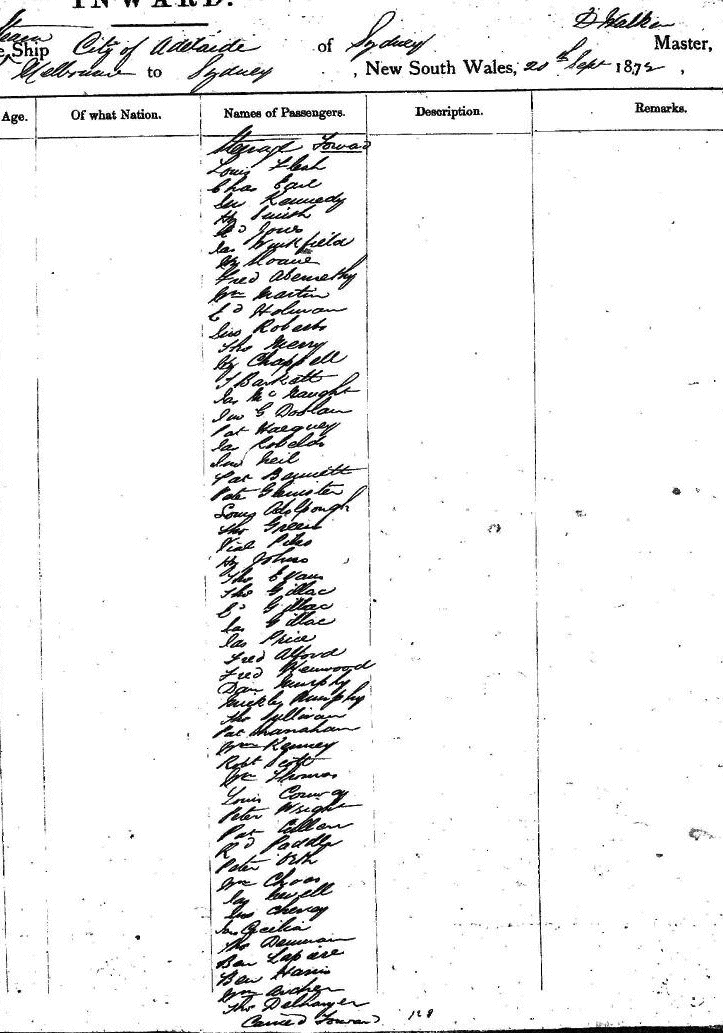 INWARD.
Steam
e Ship City of Adelaide of Sydney D Walker Master,
Melbourne to Sydney , New South Wales, 20th Sept 1872 ,
Age. Of what Nation. Names of Passengers. Description. Remarks.
Steerage Forward
Louis Flesh
Chas Earl
Jno Kennedy
Hy Smith
Rd Jones
Jas Winkfield
Hy Sloane
Fred Abernethy
Wm Martin
Ed Holman
Geo Roberts
Tho Merry
Hy Chappell
J Barkett
Jas McNaught
Jno G Doolan
Pat
Jas
Jno Neil
Pat Bennett
Peter
Louis
Tho Green
Hy Johns
Tho Evans
Tho Gillac
Ed Gillac
Jas Gillac
Jas Price
Fred Alford
Fred Henwood
Dan Murphy
Murphy
Tho Sullivan
Pat Manahan
Wm Kenney
Robt Scott
Wm Thomas
Louis Conway
Peter Wright
Pat Cullen
Rd Paddle
Peter
Wm
Jas Newell
Geo
Jas Cecilia
Tho Denman
Ben Lapare
Ben Harris
Wm Archer
Tho
Carried Forward 128